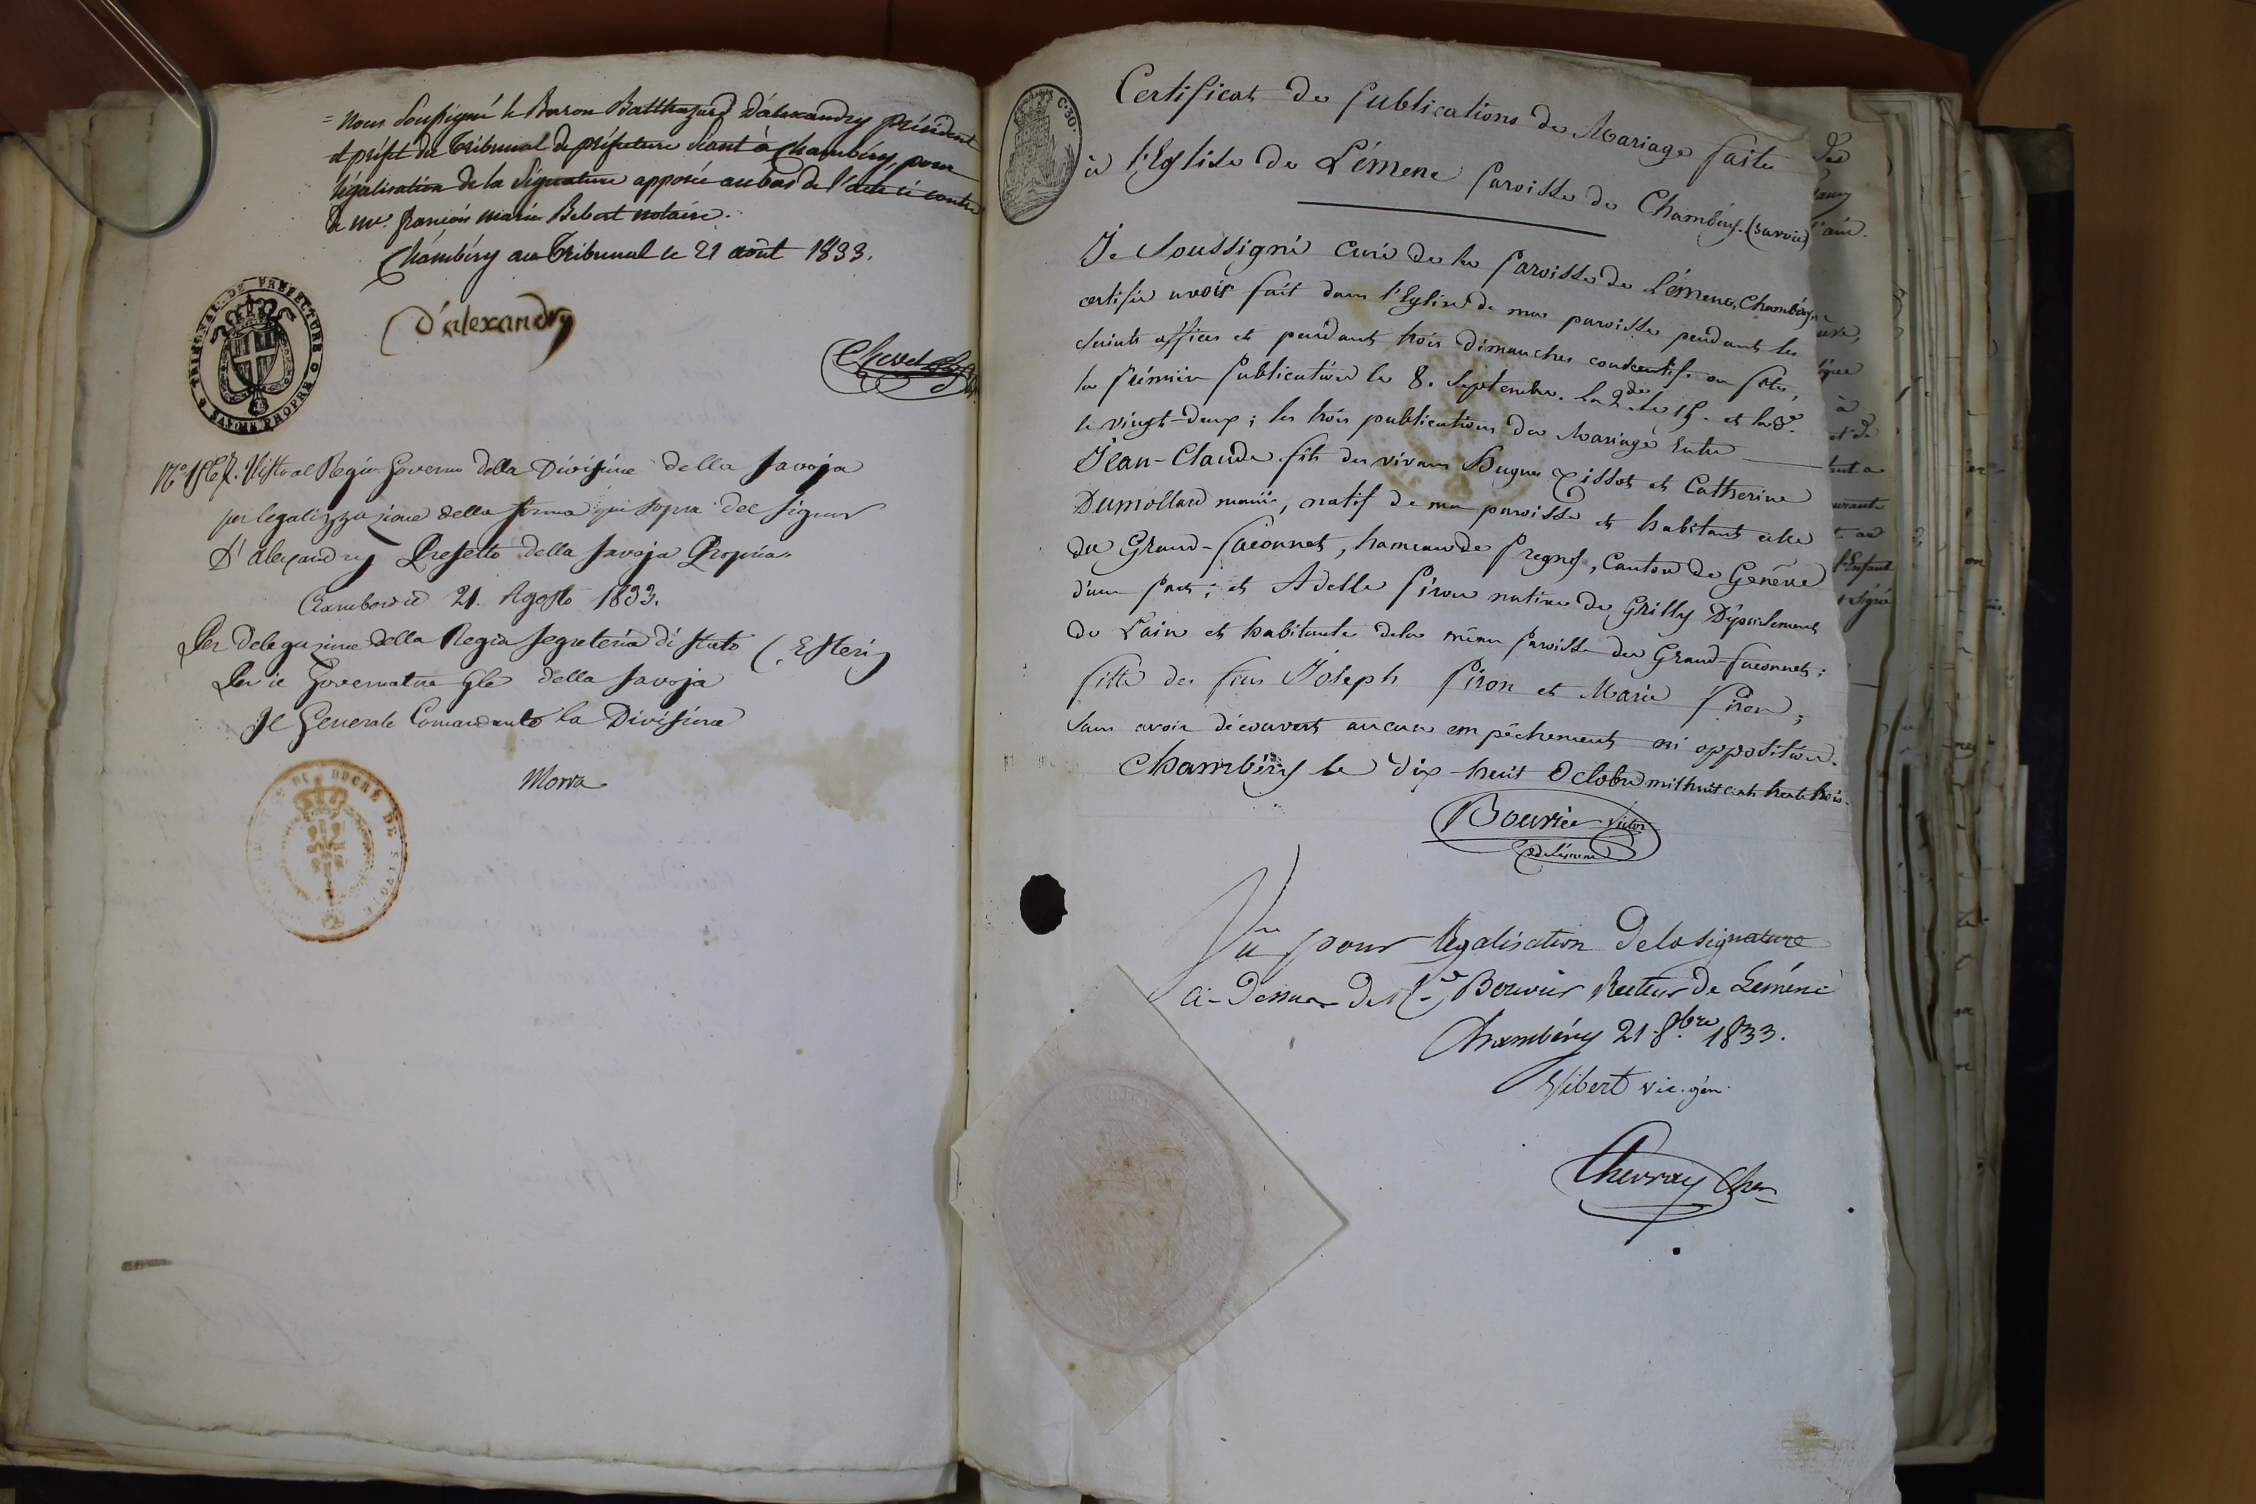 = Nous Soussigné le Baron Balthazard D'alexandry président
et préfet du Tribunal de préfecture séant à Chambéry pour
légalisation de la Signature apposée au bas de l'acte ci contre
de me. françois marie Bebert notaire.
Chambéry au Tribunal le 21 août 1833.
D'alexandry
TRIBUNAL DE PREFECTURE
SAVOIE PROPRE
Visto al Regio Governo della Divisione della Savoja
per legalizzazione della firma qui sopra del Signor
D'alexandry Prefetto della Savoja Propria
Ciamberì il 21. Agosto 1833.
Per delegazione della Regia Segreteria di Stato (Esteri)
Per il Governatore Gle della Savoja
Il Generale Comandante la Divisione
DUCHÉ DE SAVOIE
C. 30.
Certificat de Publications de Mariage faite
à l'Eglise de Lémenc Paroisse de Chambéry. (Savoie)
Je Soussigné Curé de la Paroisse de Lémenc, Chambéry
certifie avoir fait dans l'Eglise de ma paroisse pendant les
Saints offices et pendant trois dimanches consecutifs ou fêtes,
la Prémière Publication le 8. Septembre. La 2de le 15. et la 3e
le vingt-deux; les trois publications du Mariage Entre
Jean-Claude fils des vivans Hugues Pissot et Catherine
Dumollard mariés, natif de ma paroisse et habitant celle
du Grand-Saconnet, hameau de Pregny, Canton de Genève
d'une Part; et Adelle Piron native de Grilly Département
de L'ain et habitante de la même Paroisse du Grand-Saconnet;
fille des feus Joseph Piron et Marie Piron;
Sans avoir découvert aucun empêchement ni opposition.
Chambéry le dix-huit Octobre mil huit cent trente trois.
Bouvier Victor
R de Lémenc
Vu pour légalisation de la signature
ci-dessus de Rd Bouvier Recteur de Lémenc
Chambéry 21 8bre 1833.
Gibert vic. gén.
Chevray Cher